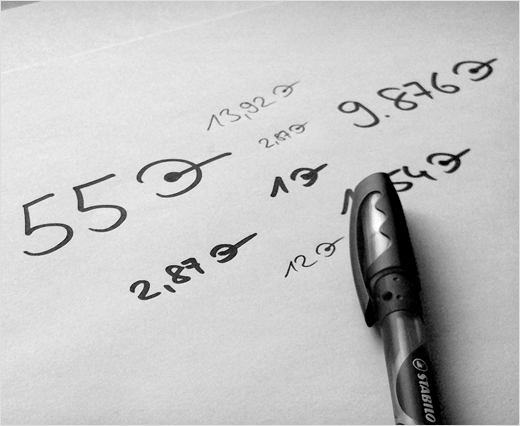 13,92
9.876
2,87
55
1
54
2,87
12
STABILO